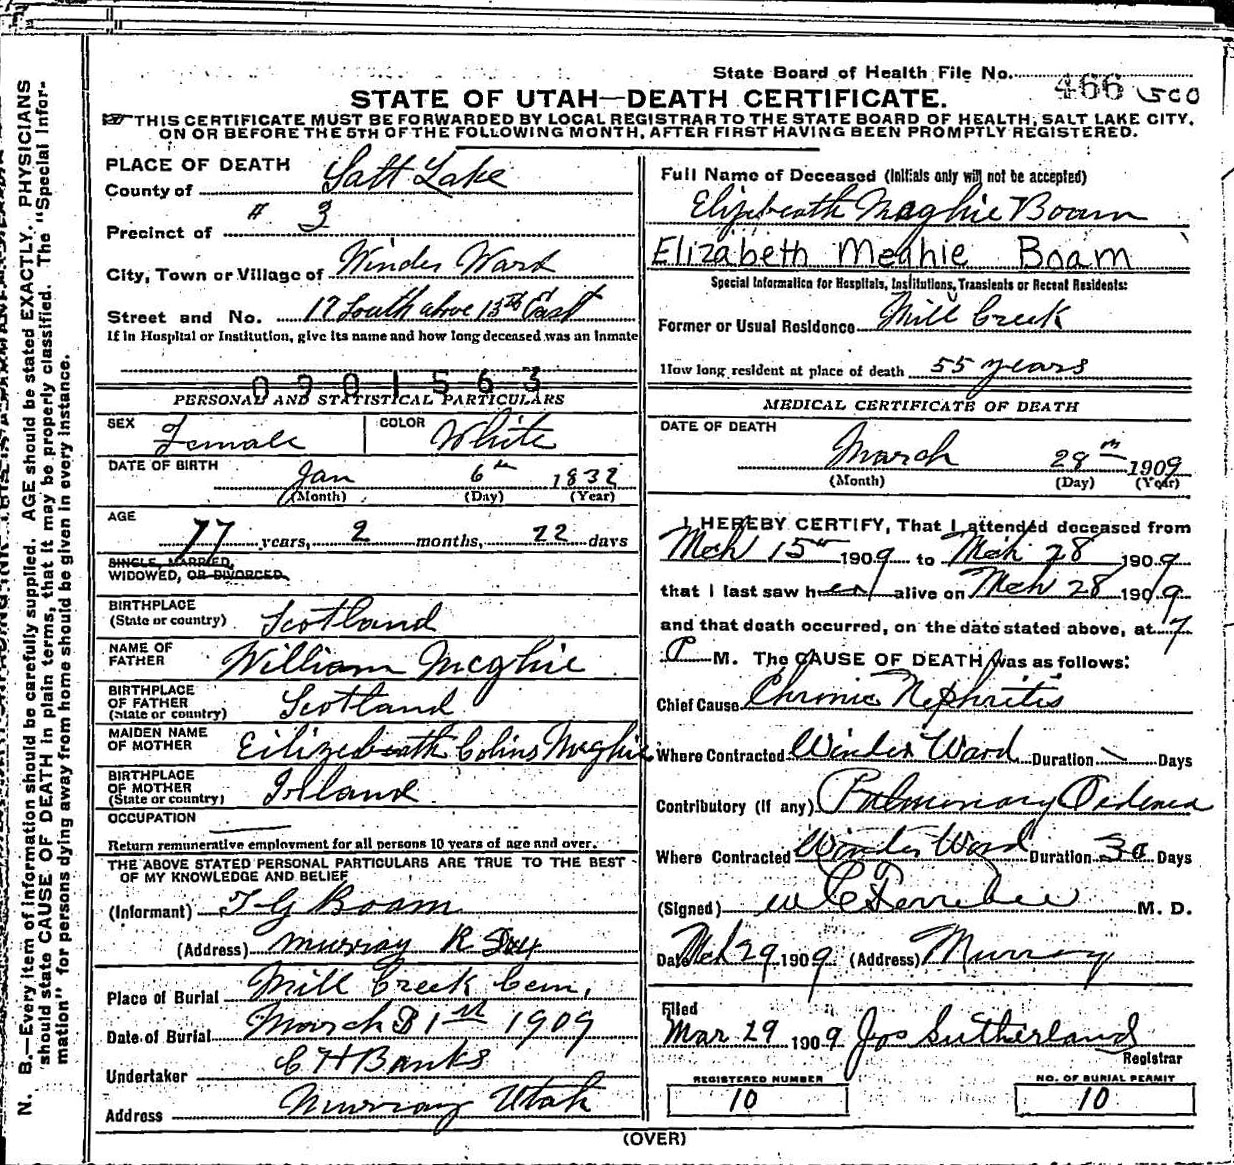 State Board of Health File No. 466 500
STATE OF UTAH—DEATH CERTIFICATE.
THIS CERTIFICATE MUST BE FORWARDED BY LOCAL REGISTRAR TO THE STATE BOARD OF HEALTH, SALT LAKE CITY,
ON OR BEFORE THE 5TH OF THE FOLLOWING MONTH, AFTER FIRST HAVING BEEN PROMPTLY REGISTERED.
PLACE OF DEATH
County of Salt Lake
Precinct of # 3
City, Town or Village of Winder Ward
Street and No. 17 South above 13th East
If in Hospital or Institution, give its name and how long deceased was an inmate
0901563
PERSONAL AND STATISTICAL PARTICULARS
SEX Female COLOR White
DATE OF BIRTH
Jan 6th 1832
(Month) (Day) (Year)
AGE
77 years, 2 months, 22 days
SINGLE, MARRIED,
WIDOWED, OR DIVORCED.
BIRTHPLACE
(State or country) Scotland
NAME OF
FATHER William Mcghie
BIRTHPLACE
OF FATHER
(State or country) Scotland
MAIDEN NAME
OF MOTHER Eilizebeath Colins Mcghie
BIRTHPLACE
OF MOTHER
(State or country) Irland
OCCUPATION
Return remunerative employment for all persons 10 years of age and over.
THE ABOVE STATED PERSONAL PARTICULARS ARE TRUE TO THE BEST
OF MY KNOWLEDGE AND BELIEF
(Informant) T G Boam
(Address) Murray R
Place of Burial Mill Creek Cem,
Date of Burial March 31st 1909
Undertaker C H Banks
Address Murray Utah
Full Name of Deceased (Initials only will not be accepted)
Elizebeath Maghie Boam
Elizabeth Meghie Boam
Special Information for Hospitals, Institutions, Transients or Recent Residents:
Former or Usual Residence Mill Creek
How long resident at place of death 55 years
MEDICAL CERTIFICATE OF DEATH
DATE OF DEATH
March 28th 1909
(Month) (Day) (Year)
I HEREBY CERTIFY, That I attended deceased from
Mch 15th 1909 to Mch 28 1909
that I last saw her alive on Mch 28 1909
and that death occurred, on the date stated above, at 7
P M. The CAUSE OF DEATH was as follows:
Chief Cause Chronic Nephritis
Where Contracted Winder Ward Duration Days
Contributory (If any) Pulmonary Oedema
Where Contracted Winder Ward Duration 30 Days
(Signed) W C Ferrebee M. D.
Date Mch 29 1909 (Address) Murray
Filed
Mar 29 1909 Jos Sutherland
Registrar
REGISTERED NUMBER
10
NO. OF BURIAL PERMIT
10
(OVER)
N. B.—Every item of information should be carefully supplied. AGE should be stated EXACTLY. PHYSICIANS
should state CAUSE OF DEATH in plain terms, that it may be properly classified. The "Special Infor-
mation" for persons dying away from home should be given in every instance.